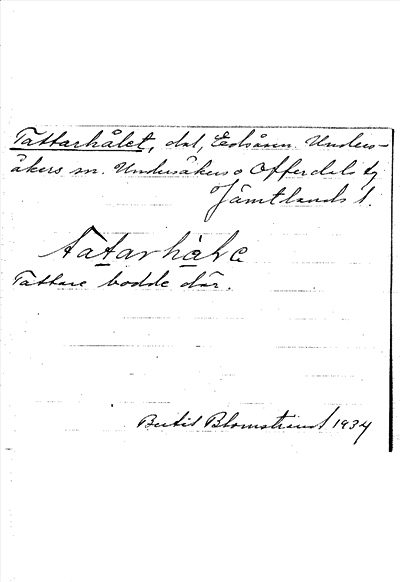 Tattarhålet, dal, Edsåsen. Unders-
åkers sn. Undersåkers o Offerdals tg
Jämtlands l.
tatarhàḷe
Tattare bodde där.
Bertil Blomstrand 1934